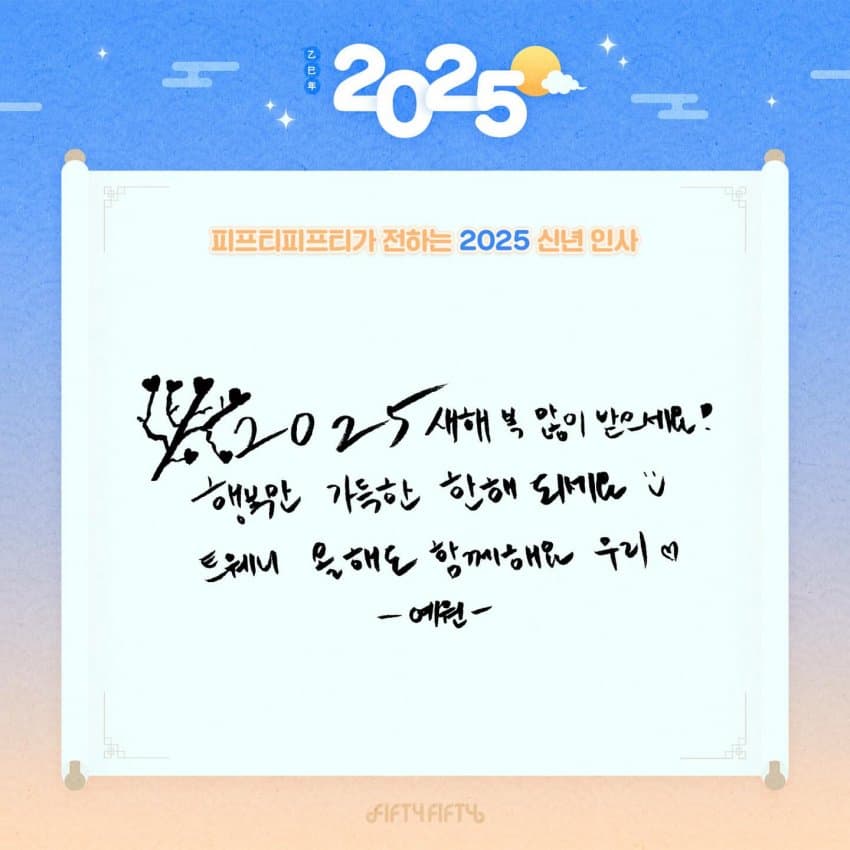 乙巳年
2025
피프티피프티가 전하는 2025 신년 인사
2025 새해 복 많이 받으세요!
행복만 가득한 한해 되세요
트웨니 올해도 함께해요 우리 ♡
- 예원 -
FIFTY FIFTY